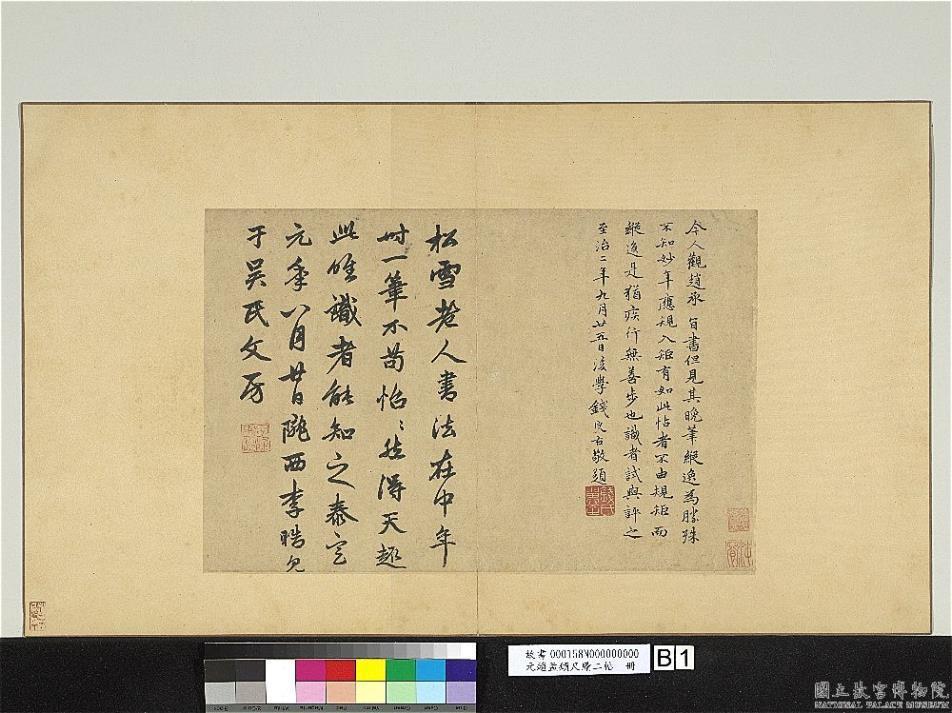 今人觀趙承旨書但見其晚筆縱逸為勝殊
不知妙年應規入矩有如此帖者不由規矩而
縱逸是猶疾行無善步也識者試與評之
至治二年九月廿五日後學錢良右敬題
松雪老人書法在中年
時一筆不苟怡〻然得天趣
此唯識者能知之泰定
元年八月廿日隴西李晧見
于吳氏文房
故書 000158N000000000
元趙孟頫尺牘二帖 冊
B 1
國立故宮博物院
NATIONAL PALACE MUSEUM